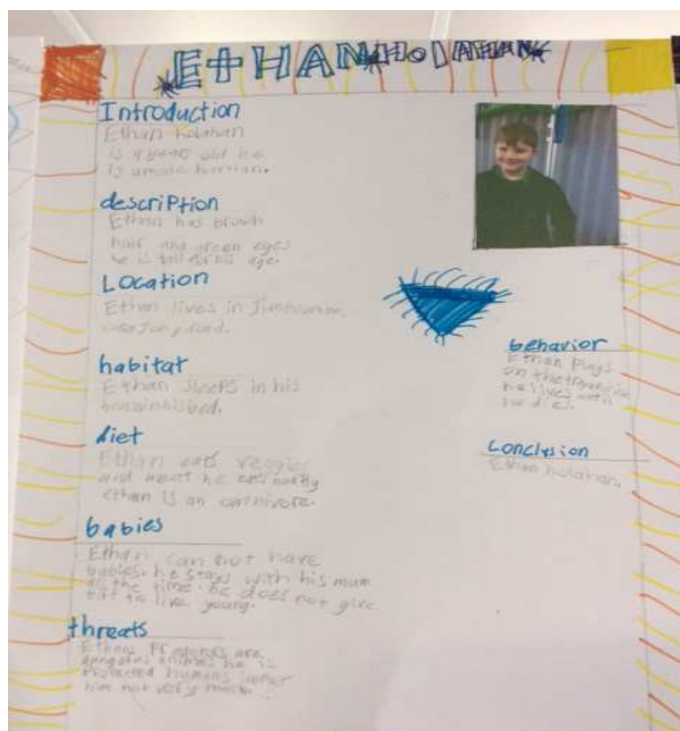 ETHAN HOLAHAN
Introduction
Ethan Holahan
is 9 years old he
is a male human.
description
Ethan has brown
hair and green eyes
he is tall for his age.
Location
Ethan lives in Jimboomba,
habitat
Ethan sleeps in his
house in his bed.
diet
Ethan eats veggies
and meat he eats
ethan is an omnivore.
babies
Ethan can not have
babies. he stays with his mum
all the time. he does not give
live young.
threats
Ethans are
animals he is
Protected humans
him not very much.
behavior
Ethan plays
on the
he lives until
he dies.
Conclusion
Ethan holahan.